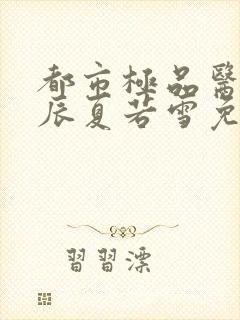 都市極品醫
辰夏若雪免
習習漂